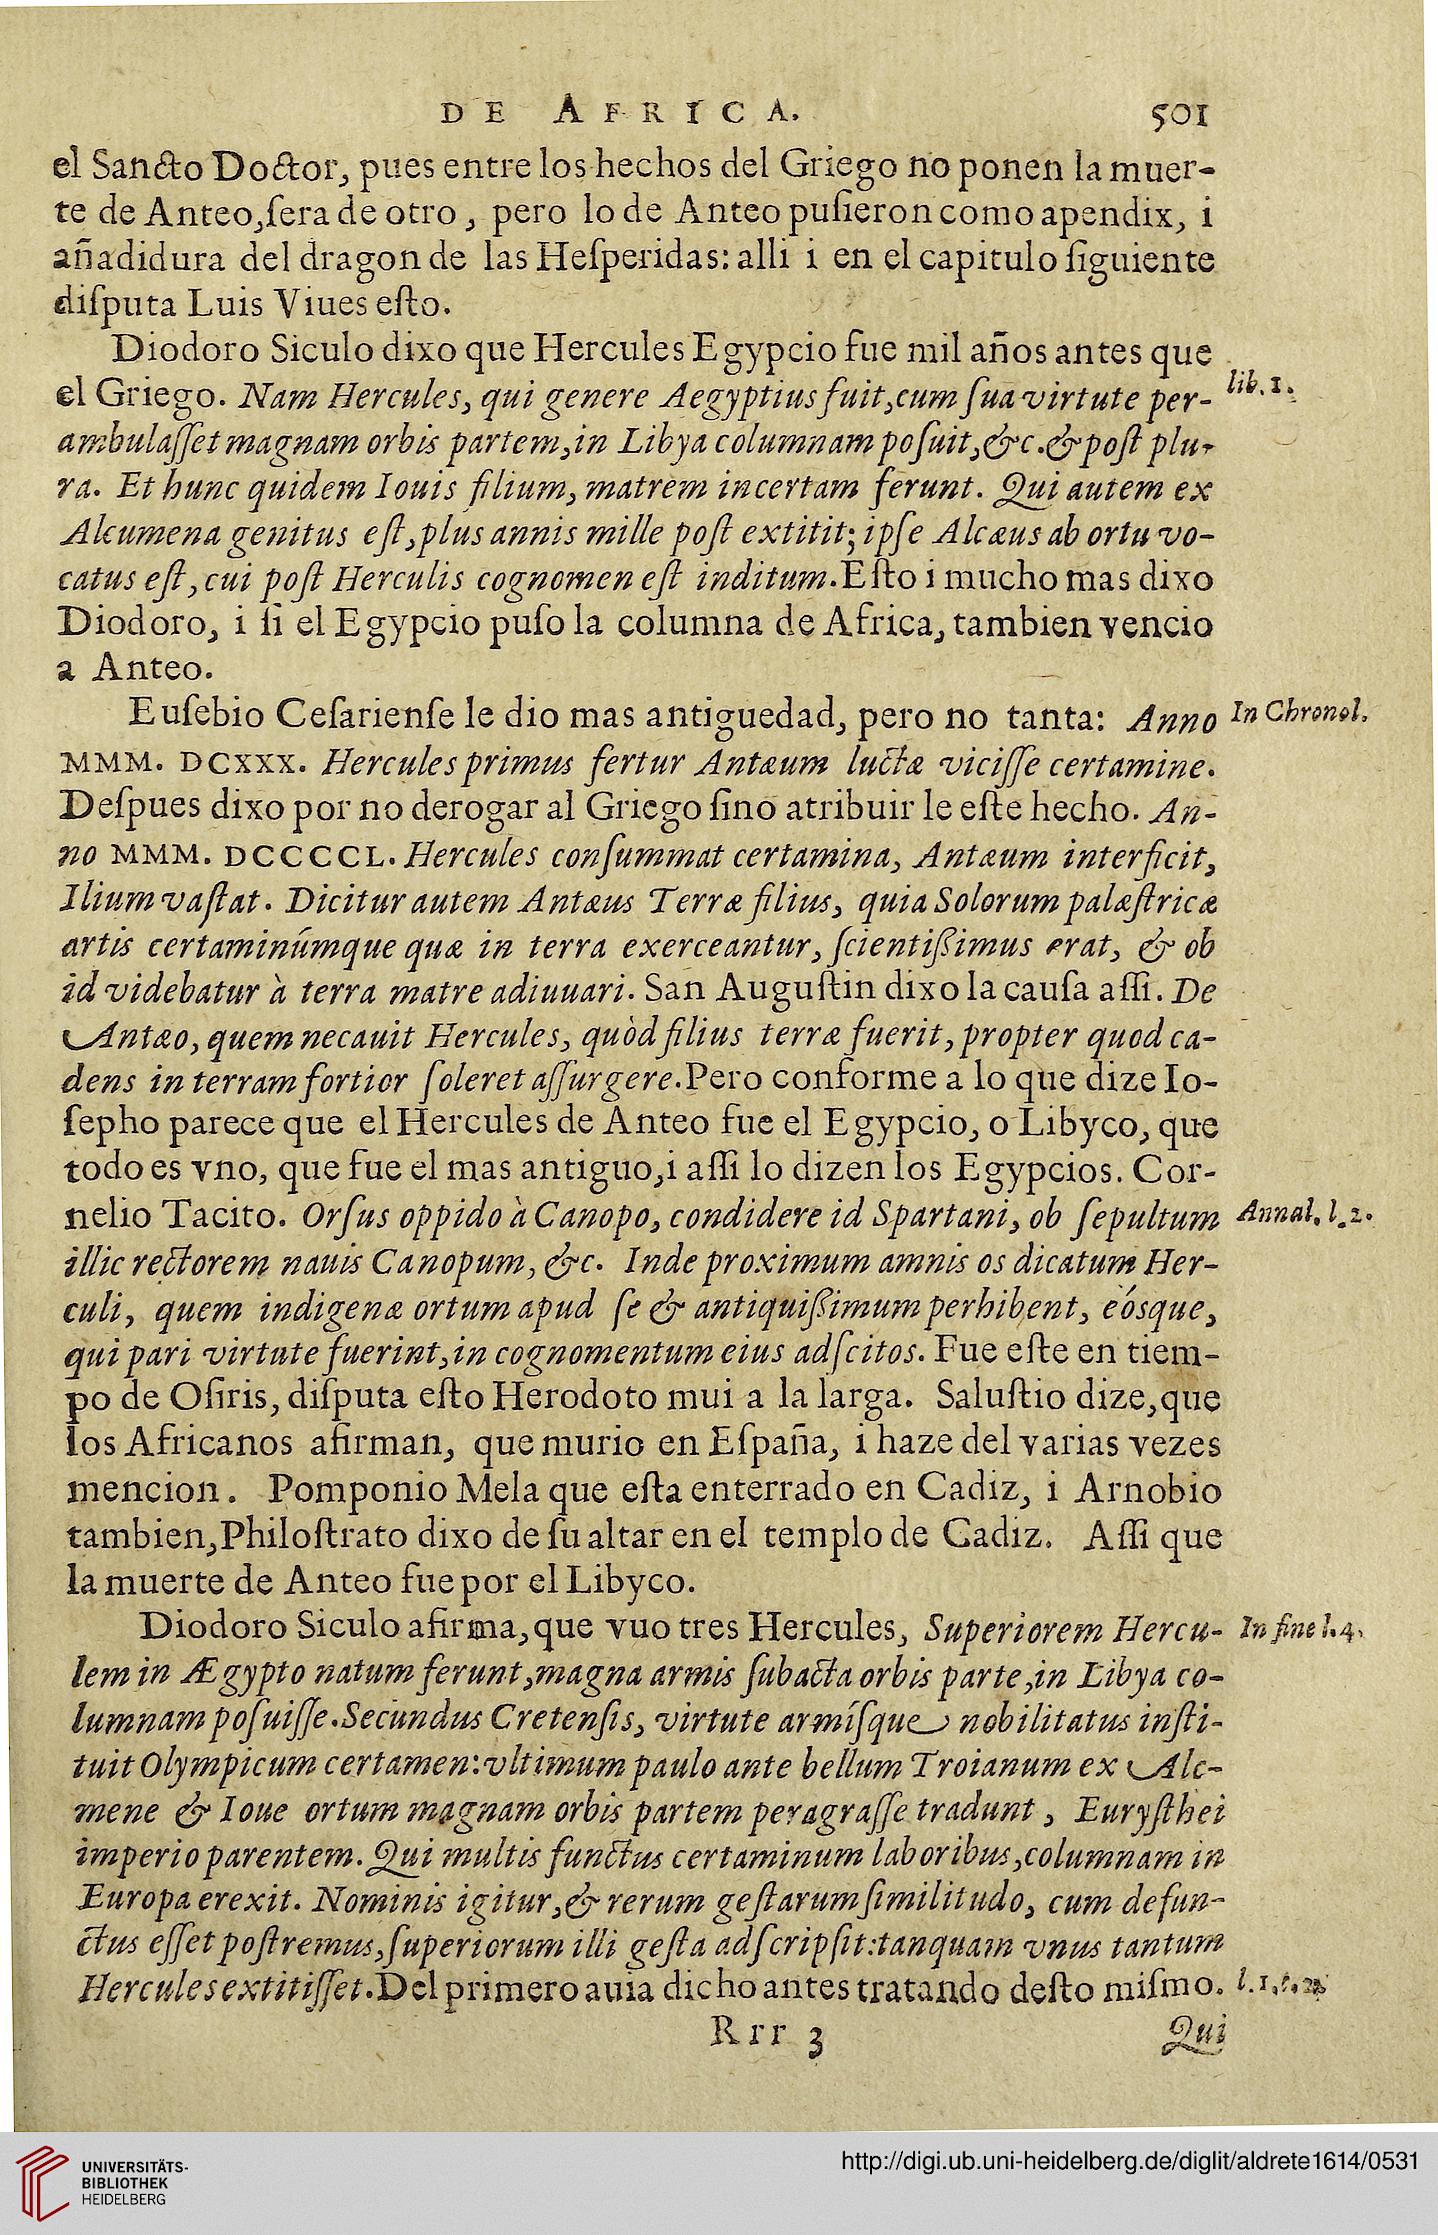 DE AFRICA. 501
el Sancto Doctor, pues entre los hechos del Griego no ponen la muer-
te de Anteo,ſera de otro, pero lo de Anteo puſieron como apendix, i
añadidura del dragon de las Heſperidas: alli i en el capitulo ſiguiente
diſputa Luis Viues eſto.
Diodoro Siculo dixo que Hercules Egypcio fue mil años antes que
el Griego. Nam Hercules, qui genere Aegyptius fuit,cum ſua virtute per- lib. 1.
ambulaſſet magnam orbis partem,in Libya columnam poſuit,&c.&poſt plu-
ra. Et hunc quidem Iouis filium, matrem incertam ferunt. Qui autem ex
Alcumena genitus eſt,plus annis mille poſt extitit; ipſe Alcæus ab ortu vo-
catus eſt, cui poſt Herculis cognomen eſt inditum. Eſto i mucho mas dixo
Diodoro, i ſi el Egypcio puſo la columna de Africa, tambien vencio
a Anteo.
Euſebio Ceſarienſe le dio mas antiguedad, pero no tanta: Anno In Chronol.
MMM. DCXXX. Hercules primus fertur Antæum luctæ viciſſe certamine.
Deſpues dixo por no derogar al Griego ſino atribuir le eſte hecho. An-
no MMM. DCCCCL. Hercules conſummat certamina, Antæum interficit,
Ilium vaſtat. Dicitur autem Antæus Terræ filius, quia Solorum palæſtricæ
artis certaminúmque quæ in terra exerceantur, ſcientißimus erat, & ob
id videbatur à terra matre adiuuari. San Auguſtin dixo la cauſa aſſi. De
Antæo, quem necauit Hercules, quòd filius terræ fuerit, propter quod ca-
dens in terram fortior ſoleret aſſurgere. Pero conforme a lo que dize Io-
ſepho parece que el Hercules de Anteo fue el Egypcio, o Libyco, que
todo es vno, que fue el mas antiguo,i aſſi lo dizen los Egypcios. Cor-
nelio Tacito. Orſus oppido à Canopo, condidere id Spartani, ob ſepultum Annal. l. 2.
illic rectorem nauis Canopum, &c. Inde proximum amnis os dicatum Her-
culi, quem indigenæ ortum apud ſe & antiquißimum perhibent, eósque,
qui pari virtute fuerint,in cognomentum eius adſcitos. Fue eſte en tiem-
po de Oſiris, diſputa eſto Herodoto mui a la larga. Saluſtio dize,que
los Africanos afirman, que murio en Eſpaña, i haze del varias vezes
mencion. Pomponio Mela que eſta enterrado en Cadiz, i Arnobio
tambien,Philoſtrato dixo de ſu altar en el templo de Cadiz. Aſſi que
la muerte de Anteo fue por el Libyco.
Diodoro Siculo afirma,que vuo tres Hercules, Superiorem Hercu- In fine l. 4.
lem in Ægypto natum ferunt,magna armis ſubacta orbis parte,in Libya co-
lumnam poſuiſſe. Secundus Cretenſis, virtute armíſque nobilitatus inſti-
tuit Olympicum certamen: vltimum paulo ante bellum Troianum ex Alc-
mene & Ioue ortum magnam orbis partem peragraſſe tradunt, Euryſthei
imperio parentem. Qui multis functus certaminum laboribus,columnam in
Europa erexit. Nominis igitur,& rerum geſtarum ſimilitudo, cum defun-
ctus eſſet poſtremus,ſuperiorum illi geſta adſcripſit:tanquam vnus tantum
Hercules extitiſſet. Del primero auia dicho antes tratando deſto miſmo. l. 1.
Rrr 3 Qui
UNIVERSITÄTS-
BIBLIOTHEK
HEIDELBERG
http://digi.ub.uni-heidelberg.de/diglit/aldrete1614/0531